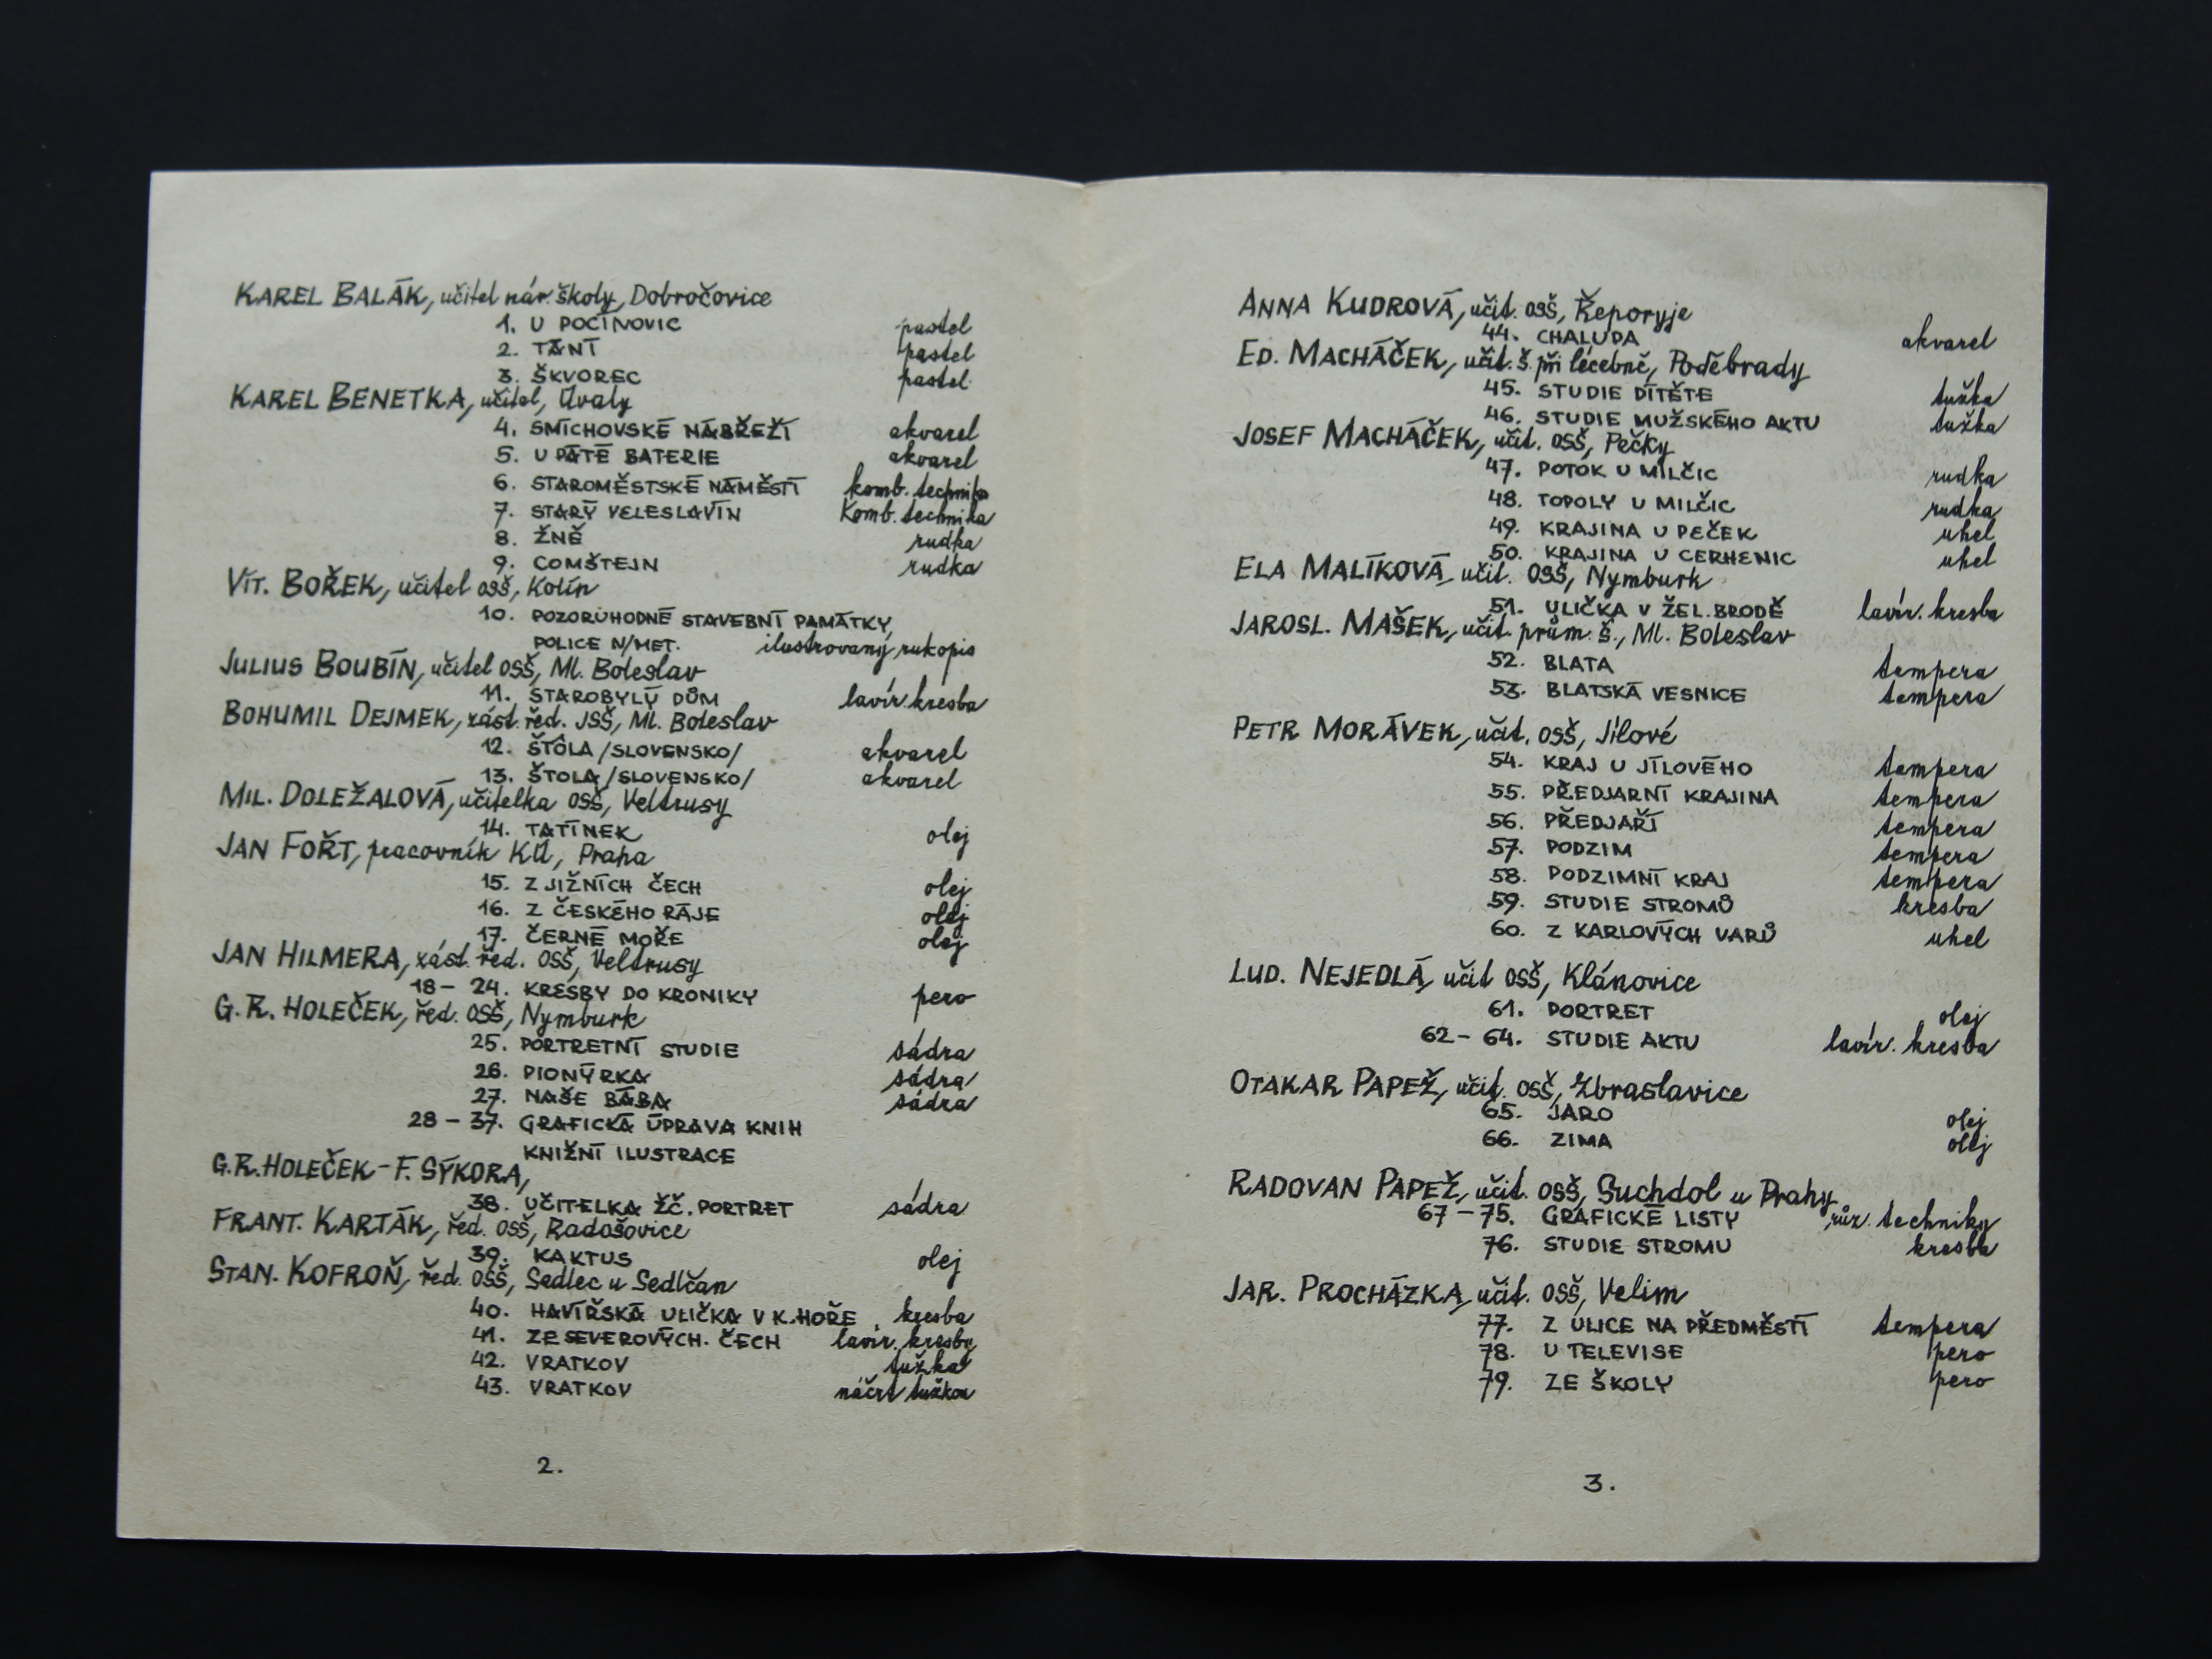 KAREL BALÁK, učitel nár. školy, Dobročovice
1. U POCÍNOVIC pastel
2. TÁNÍ pastel
3. ŠKVOREC pastel
KAREL BENETKA, učitel, Úvaly
4. SMÍCHOVSKÉ NÁBŘEŽÍ akvarel
5. U PÁTÉ BATERIE akvarel
6. STAROMĚSTSKÉ NÁMĚSTÍ komb. technika
7. STARÝ VELESLAVÍN Komb. technika
8. ŽNĚ rudka
9. COMŠTEJN rudka
VÍT. BOŘEK, učitel OSŠ, Kolín
10. POZORUHODNÉ STAVEBNÍ PAMÁTKY,
POLICE N/MET. ilustrovaný rukopis
JULIUS BOUBÍN, učitel OSŠ, Ml. Boleslav
11. STAROBYLÝ DŮM lavír. kresba
BOHUMIL DEJMEK, zást. řed. JSŠ, Ml. Boleslav
12. ŠTÔLA /SLOVENSKO/ akvarel
13. ŠTOLA /SLOVENSKO/ akvarel
MIL. DOLEŽALOVÁ, učitelka OSŠ, Veltrusy
14. TATÍNEK olej
JAN FOŘT, pracovník KÚ, Praha
15. Z JIŽNÍCH ČECH olej
16. Z ČESKÉHO RÁJE olej
17. ČERNÉ MOŘE olej
JAN HILMERA, zást. řed. OSŠ, Veltrusy
18 – 24. KRESBY DO KRONIKY pero
G. R. HOLEČEK, řed. OSŠ, Nymburk
25. PORTRETNÍ STUDIE sádra
26. PIONÝRKA sádra
27. NAŠE BÁBA sádra
28 – 37. GRAFICKÁ ÚPRAVA KNIH
KNIŽNÍ ILUSTRACE
G.R. HOLEČEK – F. SÝKORA,
38. UČITELKA ŽČ. PORTRET sádra
FRANT. KARTÁK, řed. OSŠ, Radošovice
39. KAKTUS olej
STAN. KOFROŇ, řed. OSŠ, Sedlec u Sedlčan
40. HAVÍŘSKÁ ULIČKA V K.HOŘE kresba
41. ZE SEVEROVÝCH. ČECH lavír. kresby
42. VRATKOV tužka
43. VRATKOV náčrt tužkou
2.
ANNA KUDROVÁ, učit. OSŠ, Řeporyje
44. CHALUPA akvarel
ED. MACHÁČEK, učit. š. při léčebně, Poděbrady
45. STUDIE DÍTĚTE tužka
46. STUDIE MUŽSKÉHO AKTU tužka
JOSEF MACHÁČEK, učit. OSŠ, Pečky
47. POTOK U MILČIC rudka
48. TOPOLY U MILČIC rudka
49. KRAJINA U PEČEK uhel
50. KRAJINA U CERHENIC uhel
ELA MALÍKOVÁ, učit. OSŠ, Nymburk
51. ULIČKA V ŽEL. BRODĚ lavír. kresba
JAROSL. MAŠEK, učit. prům. š., Ml. Boleslav
52. BLATA tempera
53. BLATSKÁ VESNICE tempera
PETR MORÁVEK, učit. OSŠ, Jílové
54. KRAJ U JÍLOVÉHO tempera
55. PŘEDJARNÍ KRAJINA tempera
56. PŘEDJAŘÍ tempera
57. PODZIM tempera
58. PODZIMNÍ KRAJ tempera
59. STUDIE STROMŮ kresba
60. Z KARLOVÝCH VARŮ uhel
LUD. NEJEDLÁ, učit OSŠ, Klánovice
61. PORTRET olej
62 – 64. STUDIE AKTU lavír. kresba
OTAKAR PAPEŽ, učit. OSŠ, Zbraslavice
65. JARO olej
66. ZIMA olej
RADOVAN PAPEŽ, učit. OSŠ, Suchdol u Prahy
67 – 75. GRAFICKÉ LISTY růz. techniky
76. STUDIE STROMU kresba
JAR. PROCHÁZKA, učit. OSŠ, Velim
77. Z ULICE NA PŘEDMĚSTÍ tempera
78. U TELEVISE pero
79. ZE ŠKOLY pero
3.